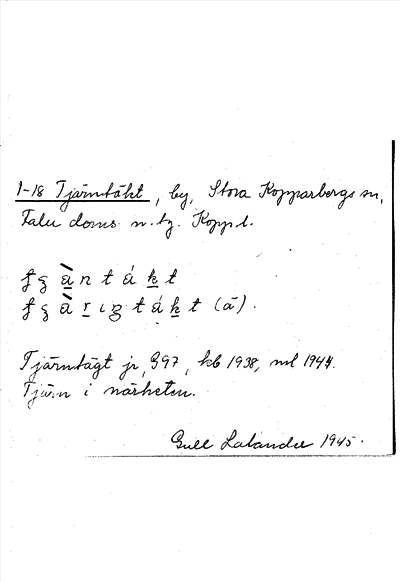 1-18 Tjärntäkt, by, Stora Kopparbergs sn,
Falu doms. n. tg. Kopp.l.
Tjärntägt jr, 397, kb 1938, ml 1944.
Tjärn i närheten.
Gull Lalander 1945.